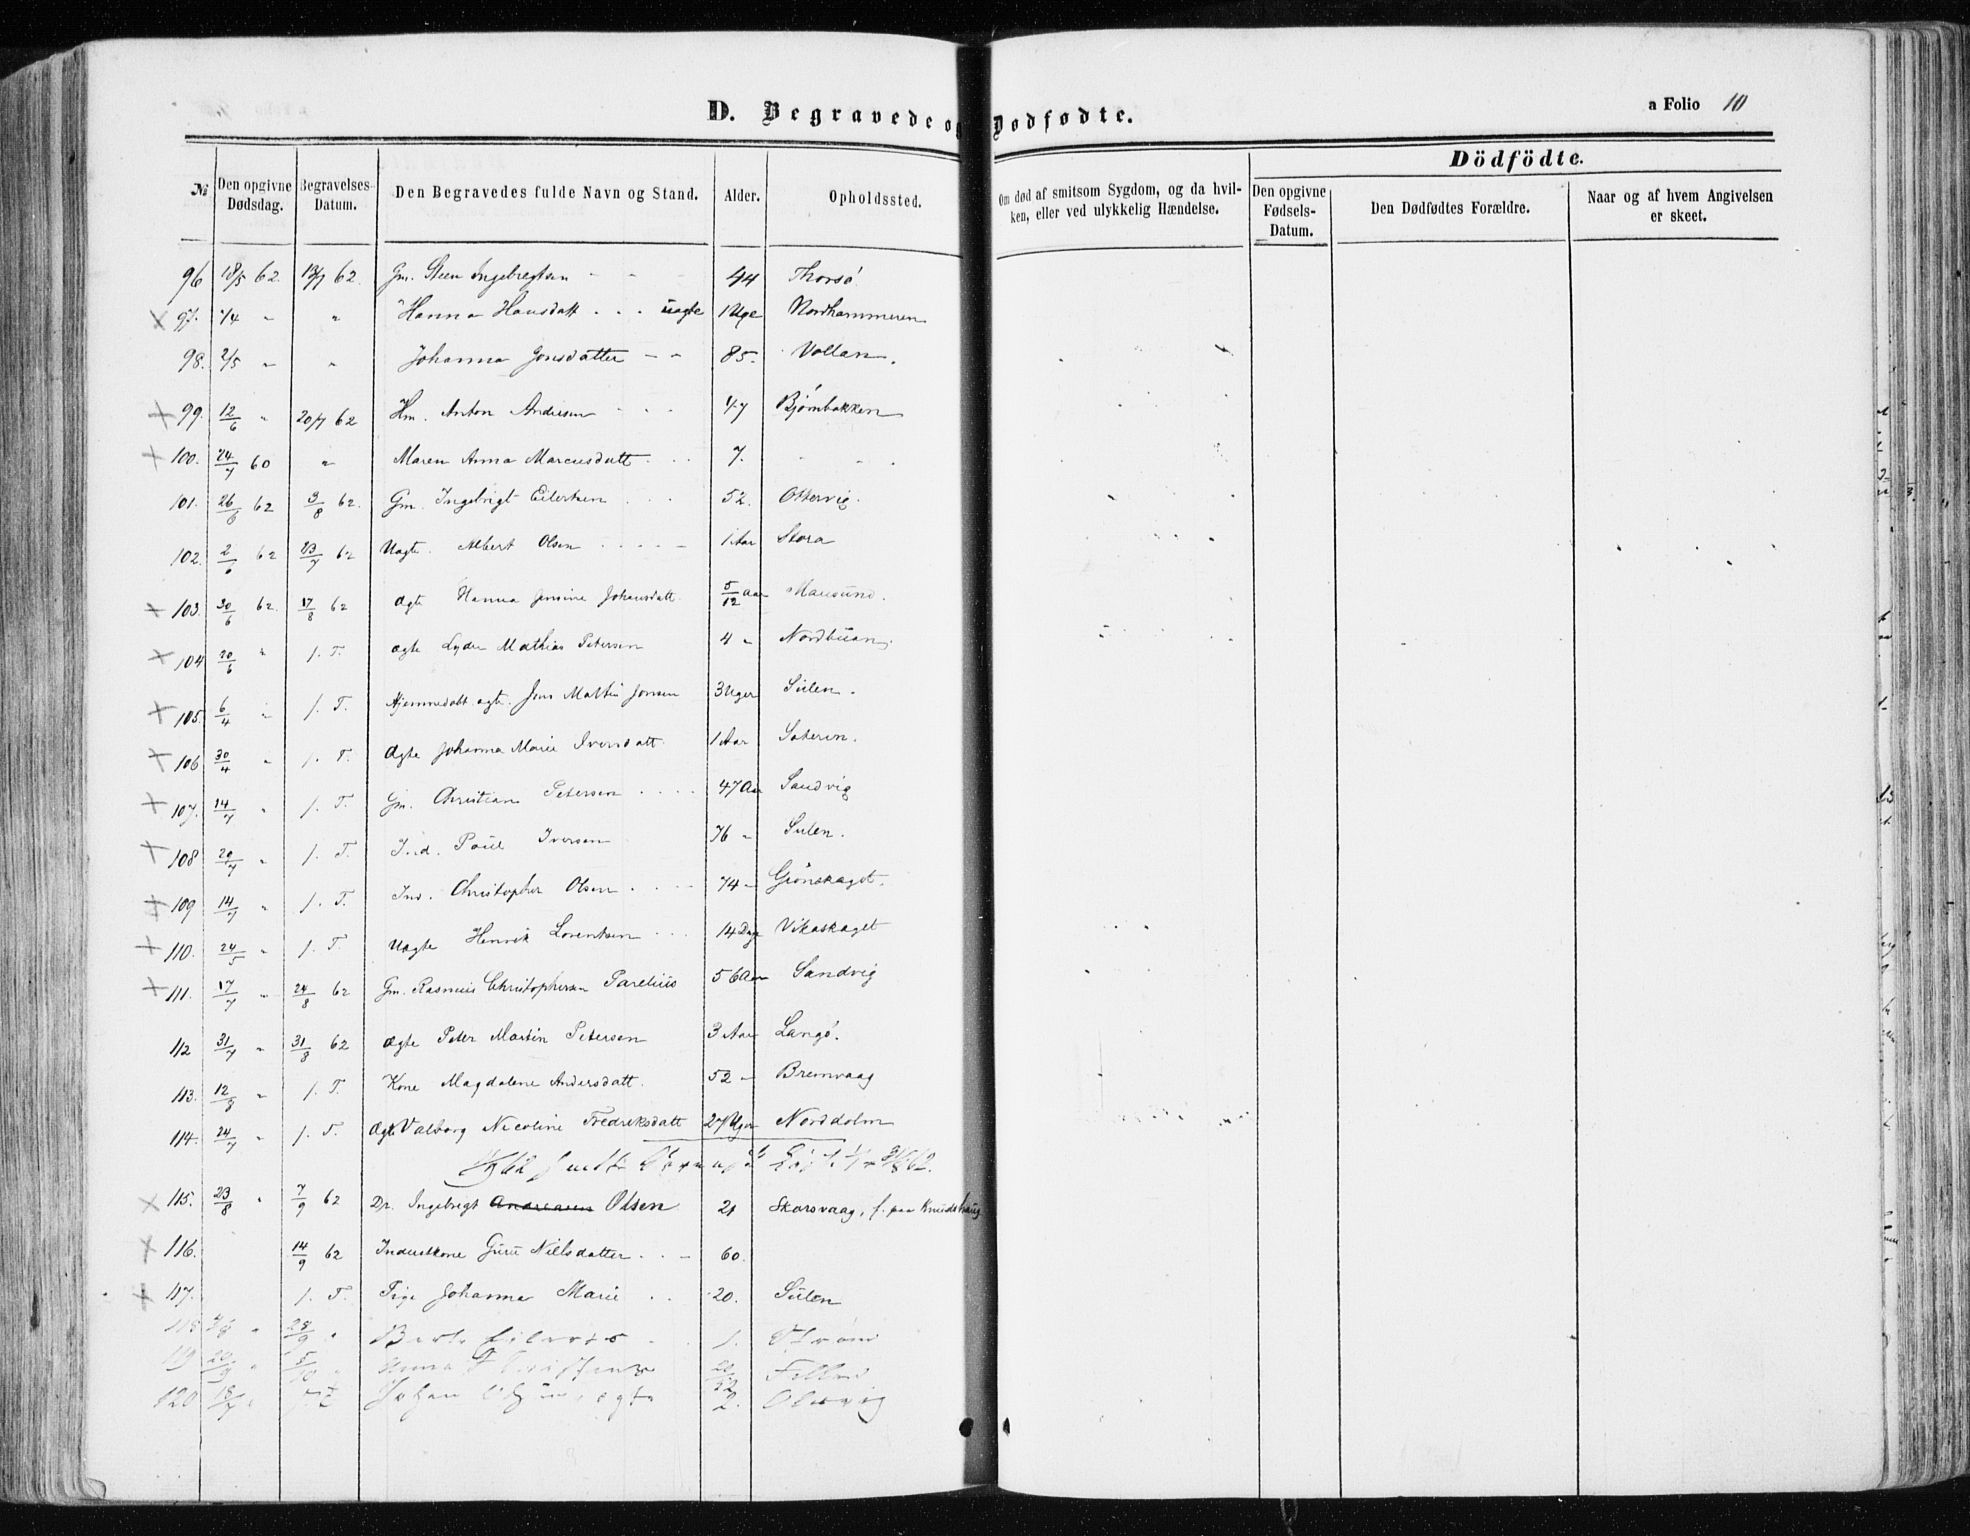 D. Begravede og Dødfødte.
a Folio 10
Dödfödte.
No Den opgivne Dødsdag. Begravelses-Datum. Den Begravedes fulde Navn og Stand. Alder. Opholdssted. Om død af smitsom Sygdom, og da hvilken, eller ved ulykkelig Hændelse. Den opgivne Fødsels-Datum. Den Dødfødtes Forældre. Naar og af hvem Angivelsen er skeet.
96 18/5 62. 13/7 62. Gm. Steen Ingebregtsen - - 44 Thorsø
97. 7/4 " " Hanna Hansdatt . . . uagte 1 Uge Nordhammeren
98. 2/5 " " Johanna Jonsdatter - - 85. Vollan.
99. 12/6 " 20/7 62 Hm. Anton Andersen - - - 47 Bjørnbakken
100. 24/7 60 " Maren Anna Marcusdatt . . . 7. - - .
101. 26/6 62 3/8 62. Gm. Ingebrigt Eilertsen . . . 52. Ottervig.
102. 2/6 62 23/7 62 Uagte. Albert Olsen - - - - 1 Aar Stora
103. 30/6 62. 17/8 62 ægte Hanna Jensine Johansdatt. 5/12 Aar Mausund.
104 20/6 " s. T. ægte Lyder Mathias Petersen 4 " Nordbuan.
105. 6/4 " s. T. Hjemmedøbt ægte. Jens Martin Jonsen 3 Uger Sulen.
106 30/4 " s. T. Ægte Johanna Marie Iversdatt. 1 Aar Sæteren.
107. 14/7 " s. T. Gm. Christian Petersen . . . . 47 Aar Sandvig
108 20/7 " s. T. Ind. Poul Iversen 76 " Sulen.
109 14/7 " s. T. Ind. Christopher Olsen . . . . 74 " Grönskaget.
110. 24/5 " s. T. Uægte Henrik Lorentsen . . . 14 Dage Vikaskaget
111. 17/7 " 24/8 62 Gm. Rasmus Christophersen Parelius 56 Aar Sandvig
112 31/7 " 31/8 62 Ægte Peter Martin Petersen 3 Aar Langö.
113. 12/8 " s. T. Kone Magdalene Andersdatt. 52 " Bremvaag
114. 24/7 " s. T. Ægte Valborg Nicoline Fredriksdatt 27 Uger Nordholm
62.
115. 23/8 " 7/9 62 Dr. Ingebrigt Olsen 21 Skarsvaag, f. paa Knudshaug
116. 14/9 62 Inderstkone Guru Nielsdatter . . - 60.
117. s. T. Pige Johanna Marie . . . 20. Sulen
118 28/9 " 1.
119 20/9 " 5/10 " Anna
120 18/7 " Johan ægte 2.